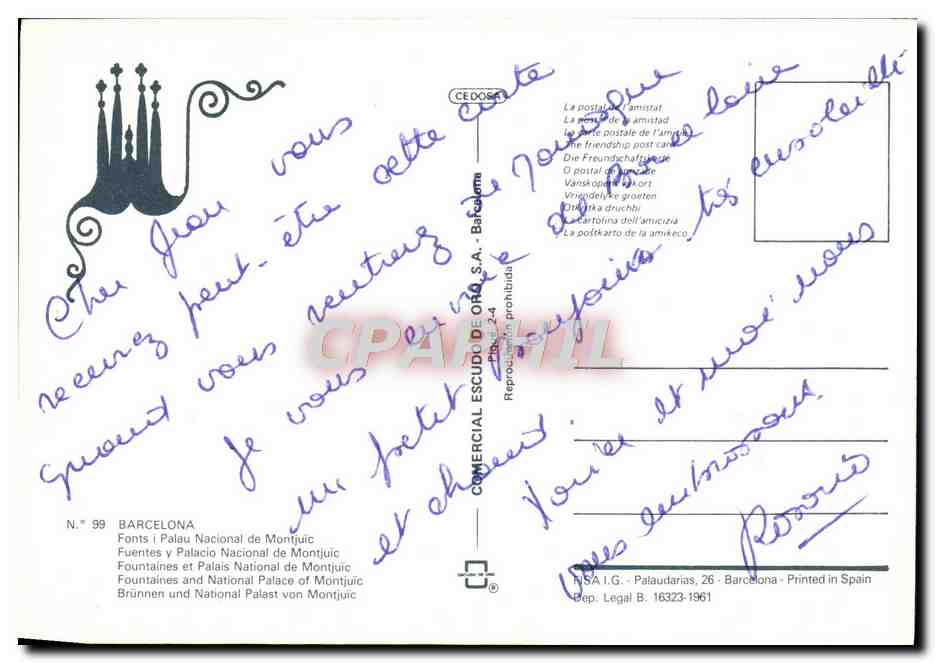 Cher Jean vous
recevrez peut-être cette carte
quand vous rentrerez de
Je vous envoie de Barcelone
un petit bonjour très ensoleillé
et chaud.
et moi nous
vous embrassons
Rosario
CEDOSA
La postal de l'amistat
La postal de la amistad
La carte postale de l'amitié
The friendship post card
Die Freundschaftskarte
O postal de amizade
Vanskopens vykort
Vriendelyke groeten
Otkritka druchbi
La cartolina dell'amicizia
La poŝtkarto de la amikeco
COMERCIAL ESCUDO DE ORO, S.A. - Barcelona
2-4
Reproducción prohibida
CPAPHIL
N.° 99 BARCELONA
Fonts i Palau Nacional de Montjuïc
Fuentes y Palacio Nacional de Montjuïc
Fountaines et Palais National de Montjuïc
Fountaines and National Palace of Montjuïc
Brünnen und National Palast von Montjuïc
ESCUDO DE ORO
®
FISA I.G. - Palaudarias, 26 - Barcelona - Printed in Spain
Dep. Legal B. 16323-1961